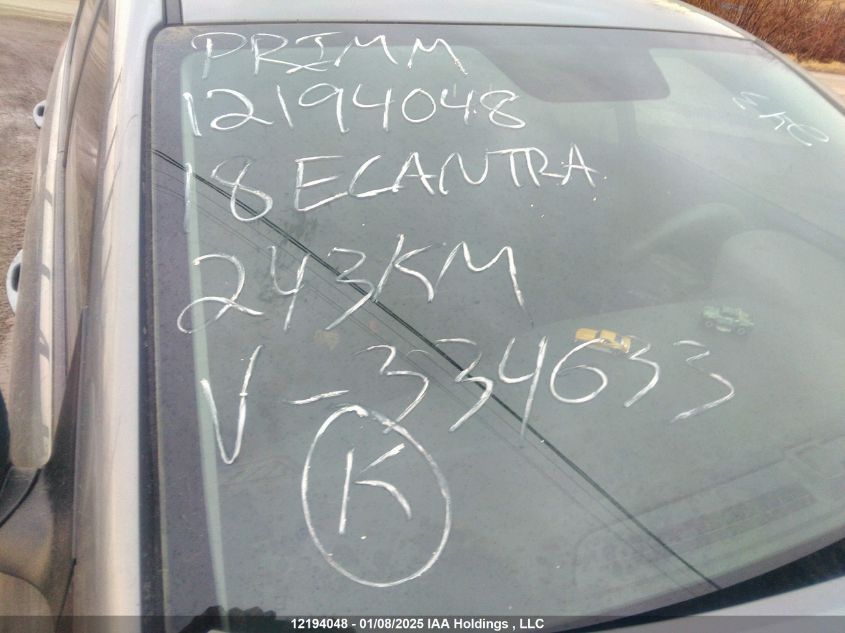 PRIMM
12194048
18 ECANTRA
243KM
V-334633
K
12194048 - 01/08/2025 IAA Holdings , LLC